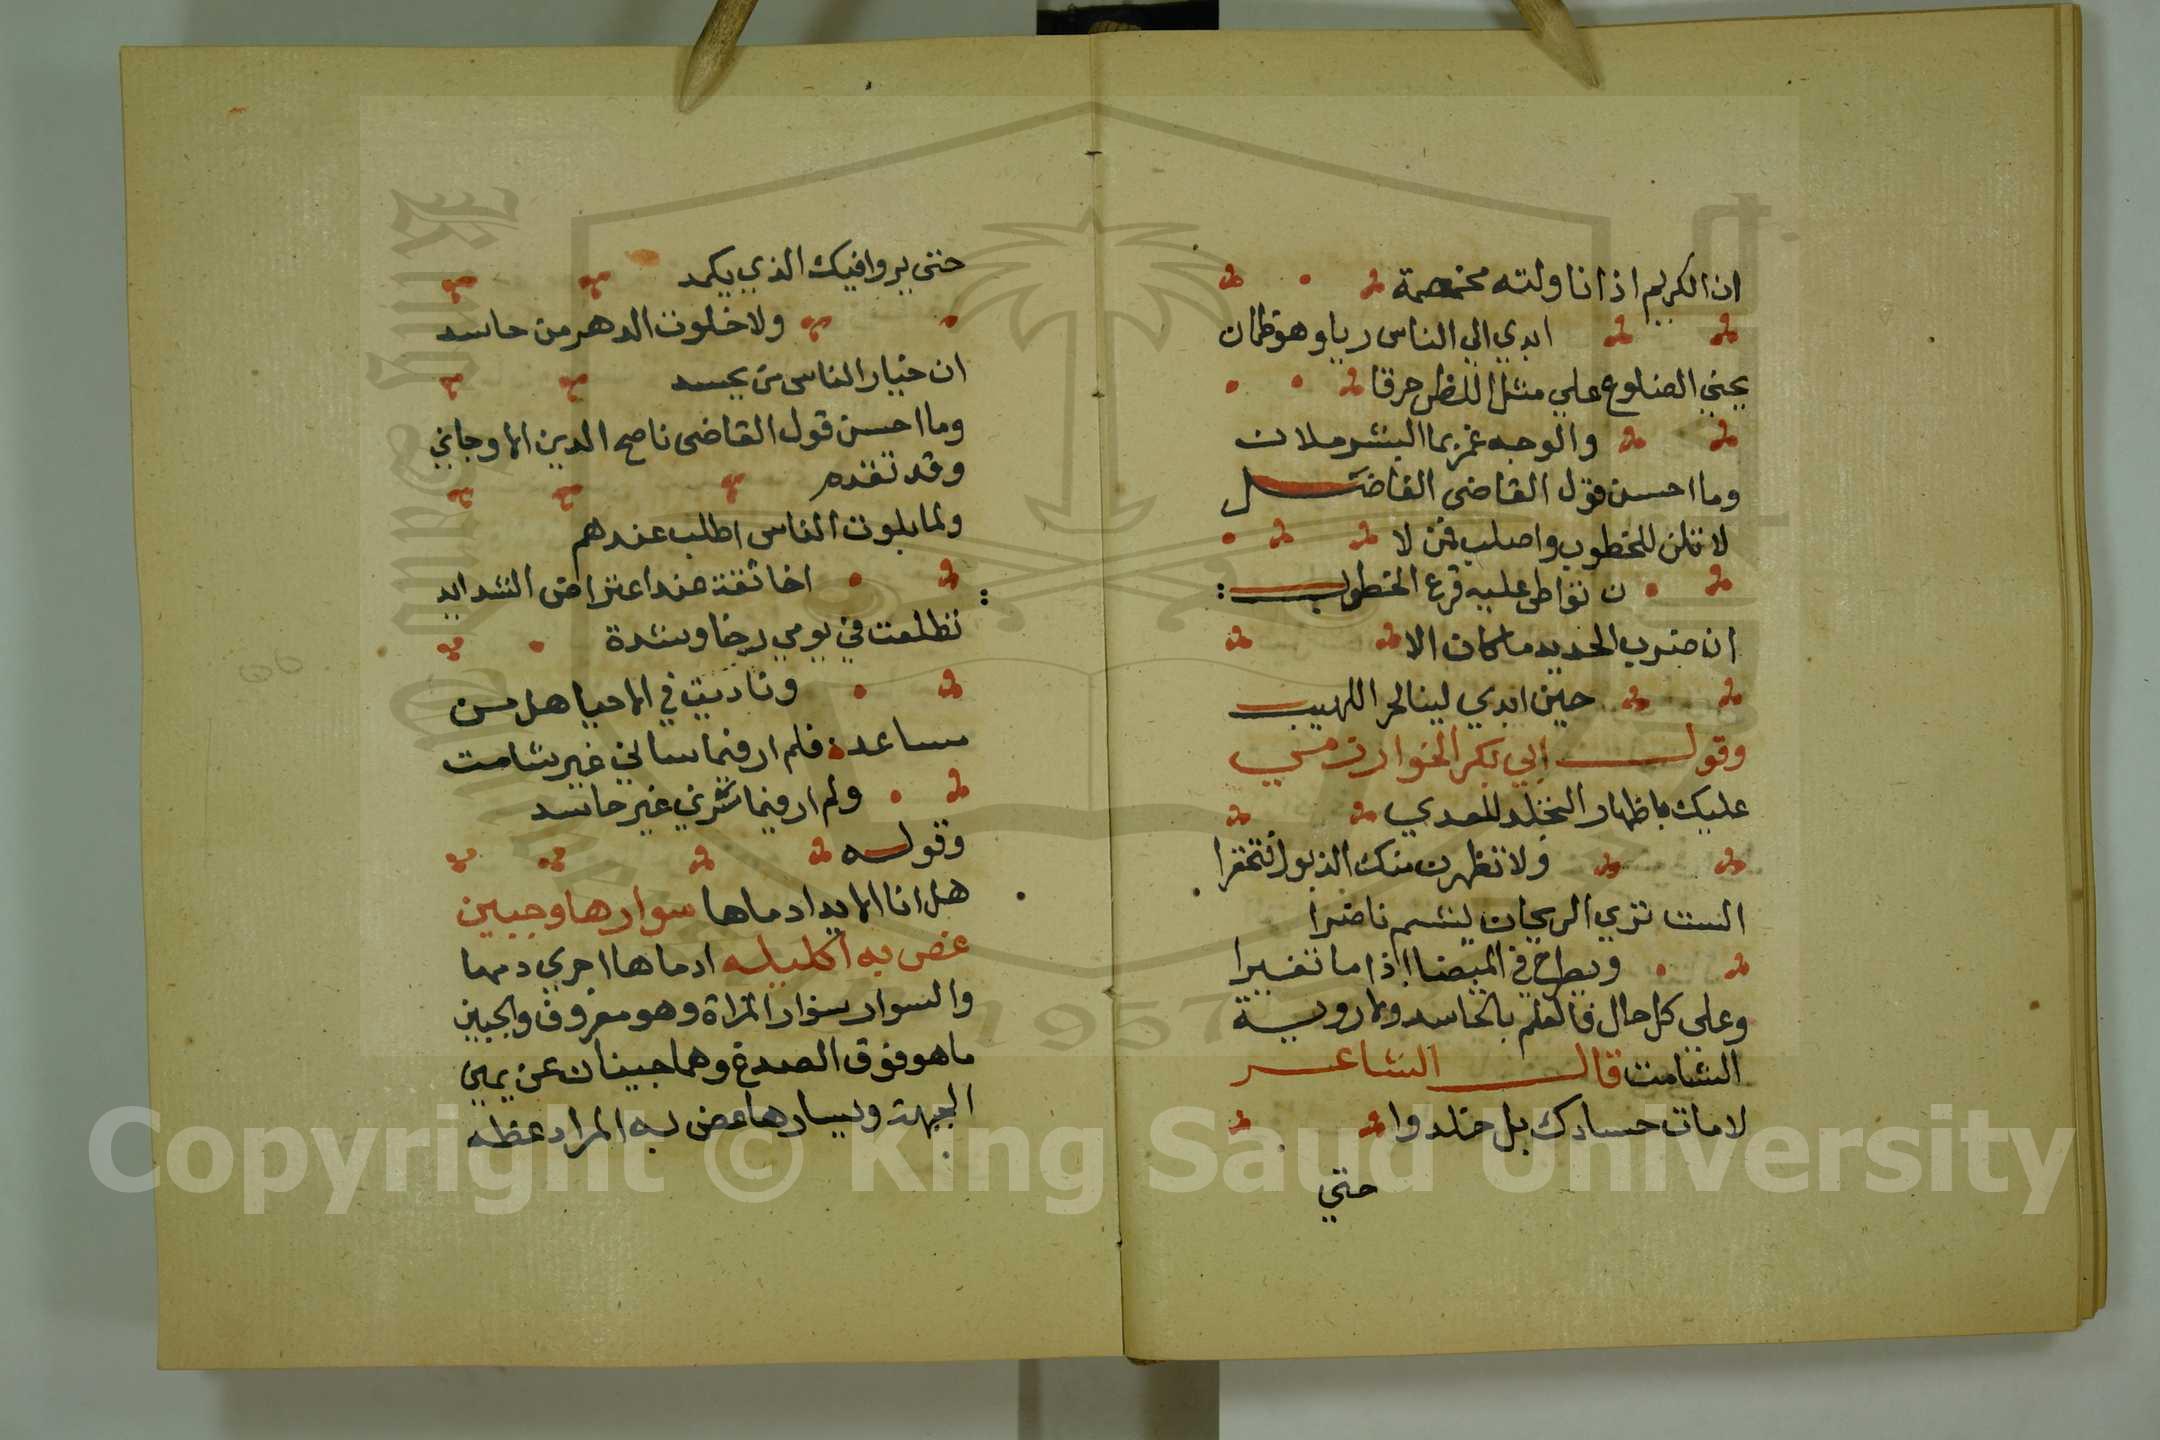 ان الكريم اذا ناولته مخمصة
ابدي الي الناس ريا وهو ظمان
يحني الضلوع علي مثل اللظى حرقا
والوجه غمر بما البشر ملان
وما احسن قول القاضي الفاضل
لا تلن للخطوب واصلب فمن لا
ن تواطى عليه قرع الخطوب
ان ضرب الحديد ما كان الا
حين ابدي لينا لحر اللهيب
وقول ابي بكر الخوارزمي
عليك باظهار التجلد للعدي
ولا تظهرن منك الذبول فتحقرا
الست تري الريحان يشم ناضرا
ويطرح في الميضا اذا ما تغيرا
وعلي كل حال فالعلم بالحاسد ولا روية
الشامت قال الشاعر
لا مات حسادك بل خلدوا
حتي
حتى يروا فيك الذي يكمد
ولا خلوت الدهر من حاسد
ان خيار الناس من يحسد
وما احسن قول القاضى ناصح الدين الاوجاني
وقد تقدم
ولما بلوت الناس اطلب عندهم
اخا ثقة عند اعتراض الشدايد
تطلعت في يومي رخا وشدة
وناديت في الاحيا هل من
مساعدة فلم ار فيما ساني غير شامت
ولم ار فيما سرني غير حاسد
وقوله
هل انا الا يد ادماها سوارها وجبين
عض به اكليله ادماها اجري دمها
والسوار سوار المراة وهو معروف والجبين
ما هو فوق الصدغ وهما جبينان عن يمين
الجبهة ويسارها عض به المراد عظه
King Saud University
1957
Copyright © King Saud University